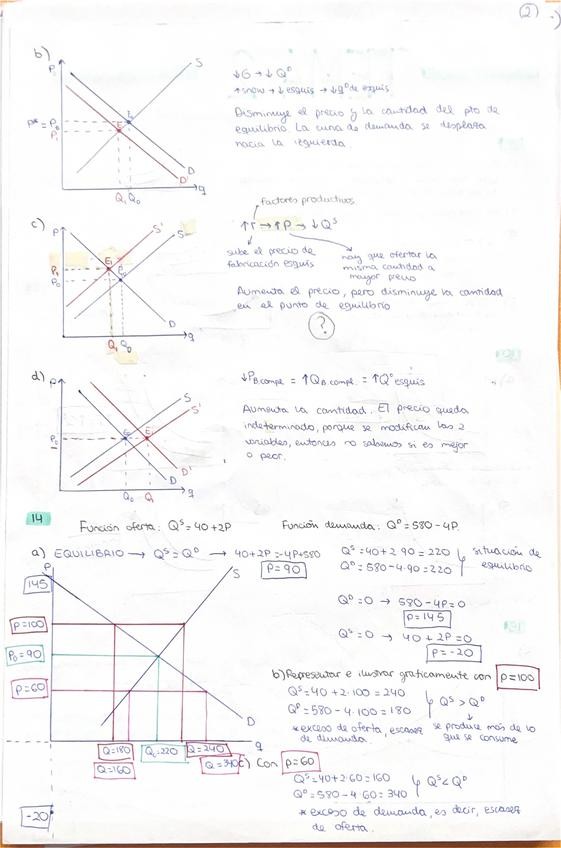 (2)
b)
P
S
P* = P₀
P₁
E₁
E₀
D
D'
Q₁ Q₀
q
↓G → ↓Q^D
↑snow → ↓esquís → ↓q^D de esquís
Disminuye el precio y la cantidad del pto de
equilibrio. La curva de demanda se desplaza
hacia la izquierda.
c)
P
S'
S
P₁
P₀
E₁
E₀
D
Q₁ Q₀
q
factores productivos
↑r → ↑P → ↓Q^S
sube el precio de
fabricación esquís
hay que ofertar la
misma cantidad a
mayor precio
Aumenta el precio, pero disminuye la cantidad
en el punto de equilibrio
?
d)
P
S
S'
P₀
E₀
E₁
D
D'
Q₀ Q₁
q
↓P_B compl. = ↑Q_B compl. = ↑Q^D esquís
Aumenta la cantidad. El precio queda
indeterminado, porque se modifican las 2
variables, entonces no sabemos si es mejor
o peor.
14
Función oferta: Q^S = 40 + 2P
Función demanda: Q^D = 580 - 4P.
a) EQUILIBRIO → Q^S = Q^D → 40 + 2P = -4P + 580
P = 90
Q^S = 40 + 2·90 = 220
Q^D = 580 - 4·90 = 220
situación de
equilibrio
Q^D = 0 → 580 - 4P = 0
P = 145
Q^S = 0 → 40 + 2P = 0
P = -20
P
145
S
P = 100
P₀ = 90
P = 60
D
q
Q = 180
Q₀ = 220
Q = 240
Q = 160
Q = 340
-20
b) Representar e ilustrar gráficamente con P = 100
Q^S = 40 + 2·100 = 240
Q^D = 580 - 4·100 = 180
Q^S > Q^D
* exceso de oferta, escasez
de demanda.
se produce más de lo
que se consume
c) Con P = 60
Q^S = 40 + 2·60 = 160
Q^D = 580 - 4·60 = 340
Q^S < Q^D
* exceso de demanda, es decir, escasez
de oferta.